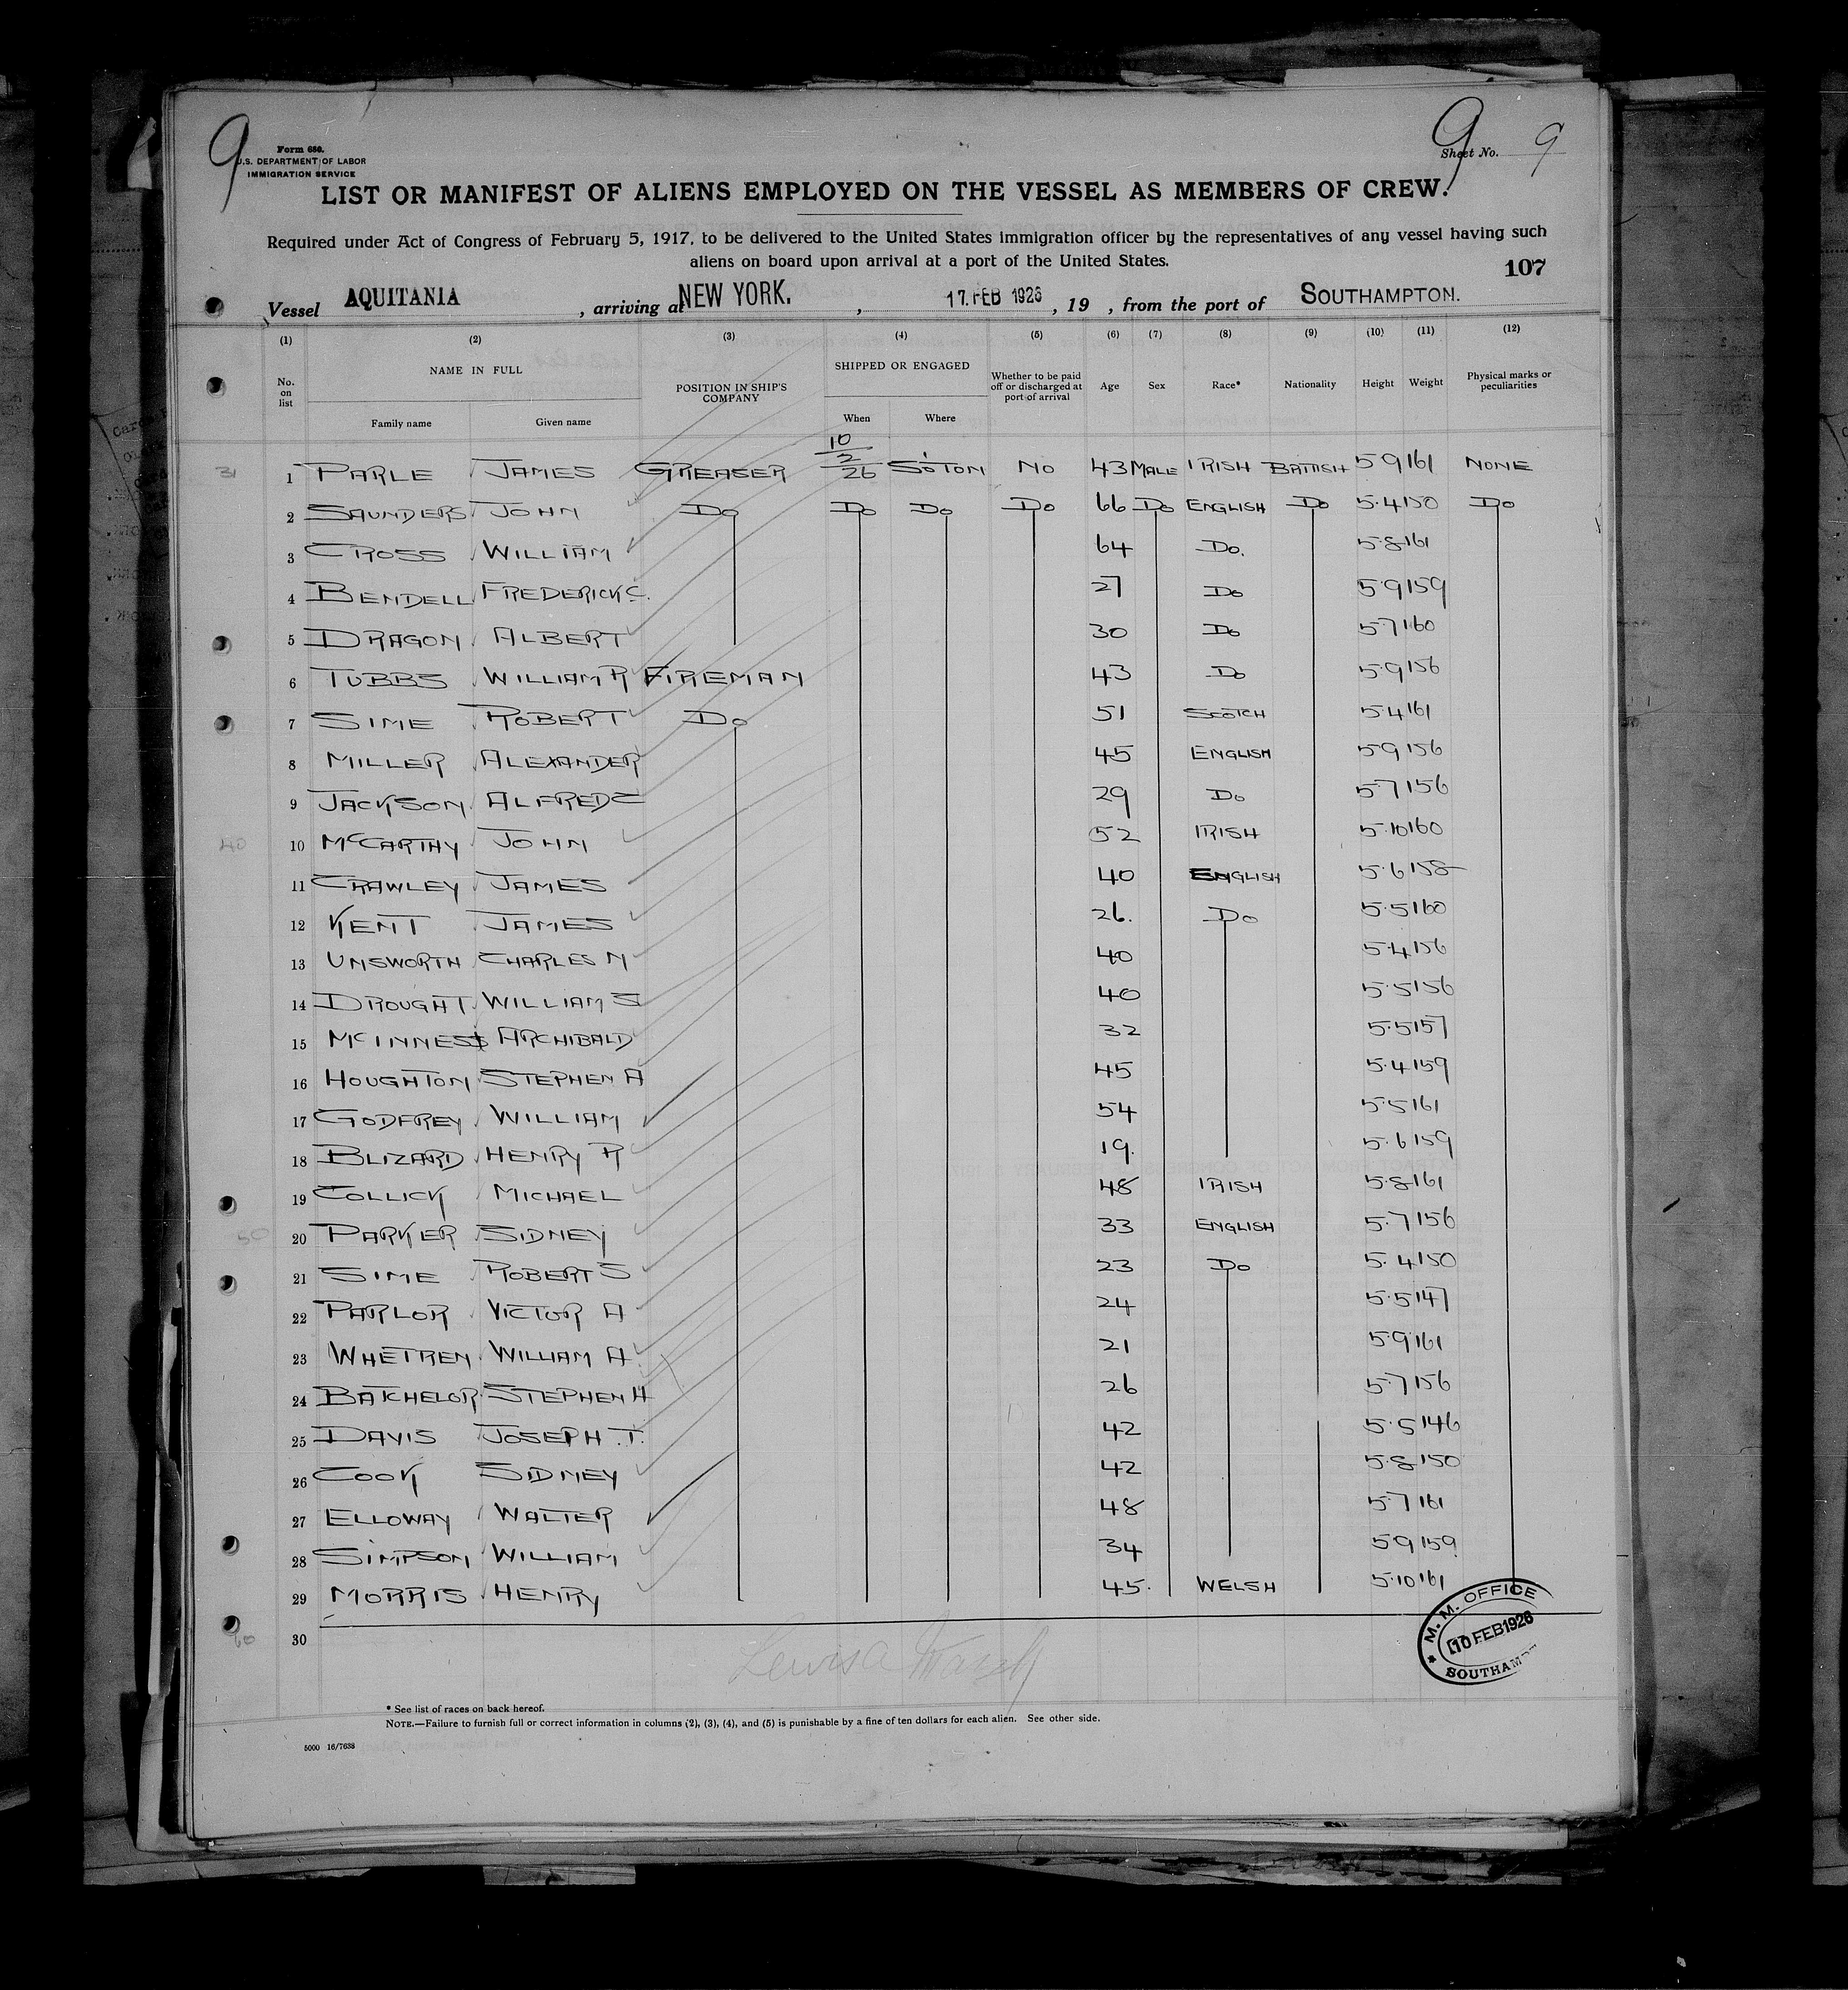 9 9
Form 680.
U.S. DEPARTMENT OF LABOR
IMMIGRATION SERVICE
Sheet No. 9
LIST OR MANIFEST OF ALIENS EMPLOYED ON THE VESSEL AS MEMBERS OF CREW.
Required under Act of Congress of February 5, 1917, to be delivered to the United States immigration officer by the representatives of any vessel having such
aliens on board upon arrival at a port of the United States.
107
Vessel AQUITANIA, arriving at NEW YORK., 17. FEB 1926, 19 , from the port of SOUTHAMPTON.
(1) (2) (3) (4) (5) (6) (7) (8) (9) (10) (11) (12)
No. on list NAME IN FULL POSITION IN SHIP'S COMPANY SHIPPED OR ENGAGED Whether to be paid off or discharged at port of arrival Age Sex Race* Nationality Height Weight Physical marks or peculiarities
Family name Given name When Where
31 1 PARLE JAMES GREASER 10/2/26 S'OTON NO 43 MALE IRISH BRITISH 5·9 161 NONE
2 SAUNDERS JOHN DO DO DO DO 66 DO ENGLISH DO 5·4 150 DO
3 CROSS WILLIAM 64 DO. 5·8 161
4 BENDELL FREDERICK C. 27 DO 5·9 159
5 DRAGON ALBERT 30 DO 5·7 160
6 TUBBS WILLIAM R FIREMAN 43 DO 5·9 156
7 SIME ROBERT DO 51 SCOTCH 5·4 161
8 MILLER ALEXANDER 45 ENGLISH 5·9 156
9 JACKSON ALFRED C 29 DO 5·7 156
40 10 McCARTHY JOHN 52 IRISH 5·10 160
11 CRAWLEY JAMES 40 ENGLISH 5·6 158
12 KENT JAMES 26. DO 5·5 160
13 UNSWORTH CHARLES N 40 5·4 156
14 DROUGHT WILLIAM S 40 5·5 156
15 McINNESS ARCHIBALD 32 5·5 157
16 HOUGHTON STEPHEN A 45 5·4 159
17 GODFREY WILLIAM 54 5·5 161
18 BLIZARD HENRY R 19. 5·6 159
19 COLLICK MICHAEL 48 IRISH 5·8 161
50 20 PARKER SIDNEY 33 ENGLISH 5·7 156
21 SIME ROBERT S 23 DO 5·4 150
22 PARLOR VICTOR A 24 5·5 147
23 WHETREN WILLIAM A. 21 5·9 161
24 BATCHELOR STEPHEN H 26 5·7 156
25 DAVIS JOSEPH.T. 42 5·5 146
26 COOK SIDNEY 42 5·8 150
27 ELLOWAY WALTER 48 5·7 161
28 SIMPSON WILLIAM 34 5·9 159
29 MORRIS HENRY 45. WELSH 5·10 161
60 30
M.M. OFFICE
10 FEB 1926
* See list of races on back hereof.
NOTE.—Failure to furnish full or correct information in columns (2), (3), (4), and (5) is punishable by a fine of ten dollars for each alien. See other side.
5000 16/7638